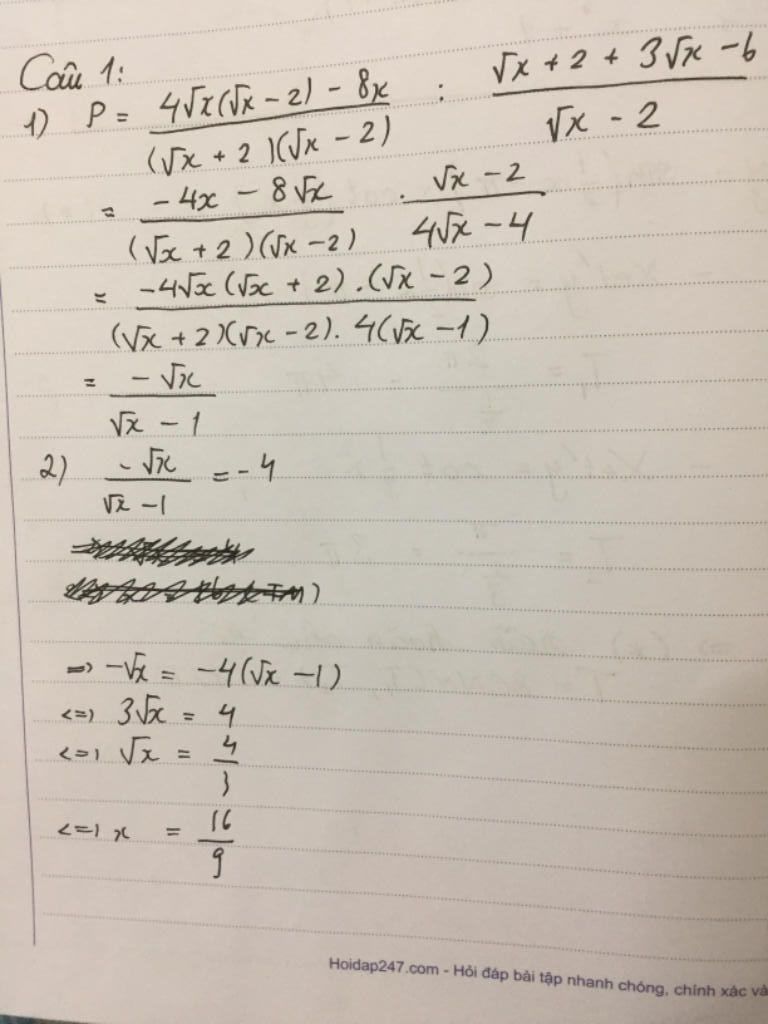 Câu 1:
1) P = (4√x(√x − 2) − 8x) / ((√x + 2)(√x − 2)) : (√x + 2 + 3√x − 6) / (√x − 2)
= (−4x − 8√x) / ((√x + 2)(√x − 2)) · (√x − 2) / (4√x − 4)
= (−4√x(√x + 2).(√x − 2)) / ((√x + 2)(√x − 2). 4(√x − 1))
= (−√x) / (√x − 1)
2) (−√x) / (√x − 1) = −4
=> −√x = −4(√x − 1)
<=> 3√x = 4
<=> √x = 4/3
<=> x = 16/9
Hoidap247.com - Hỏi đáp bài tập nhanh chóng, chính xác và